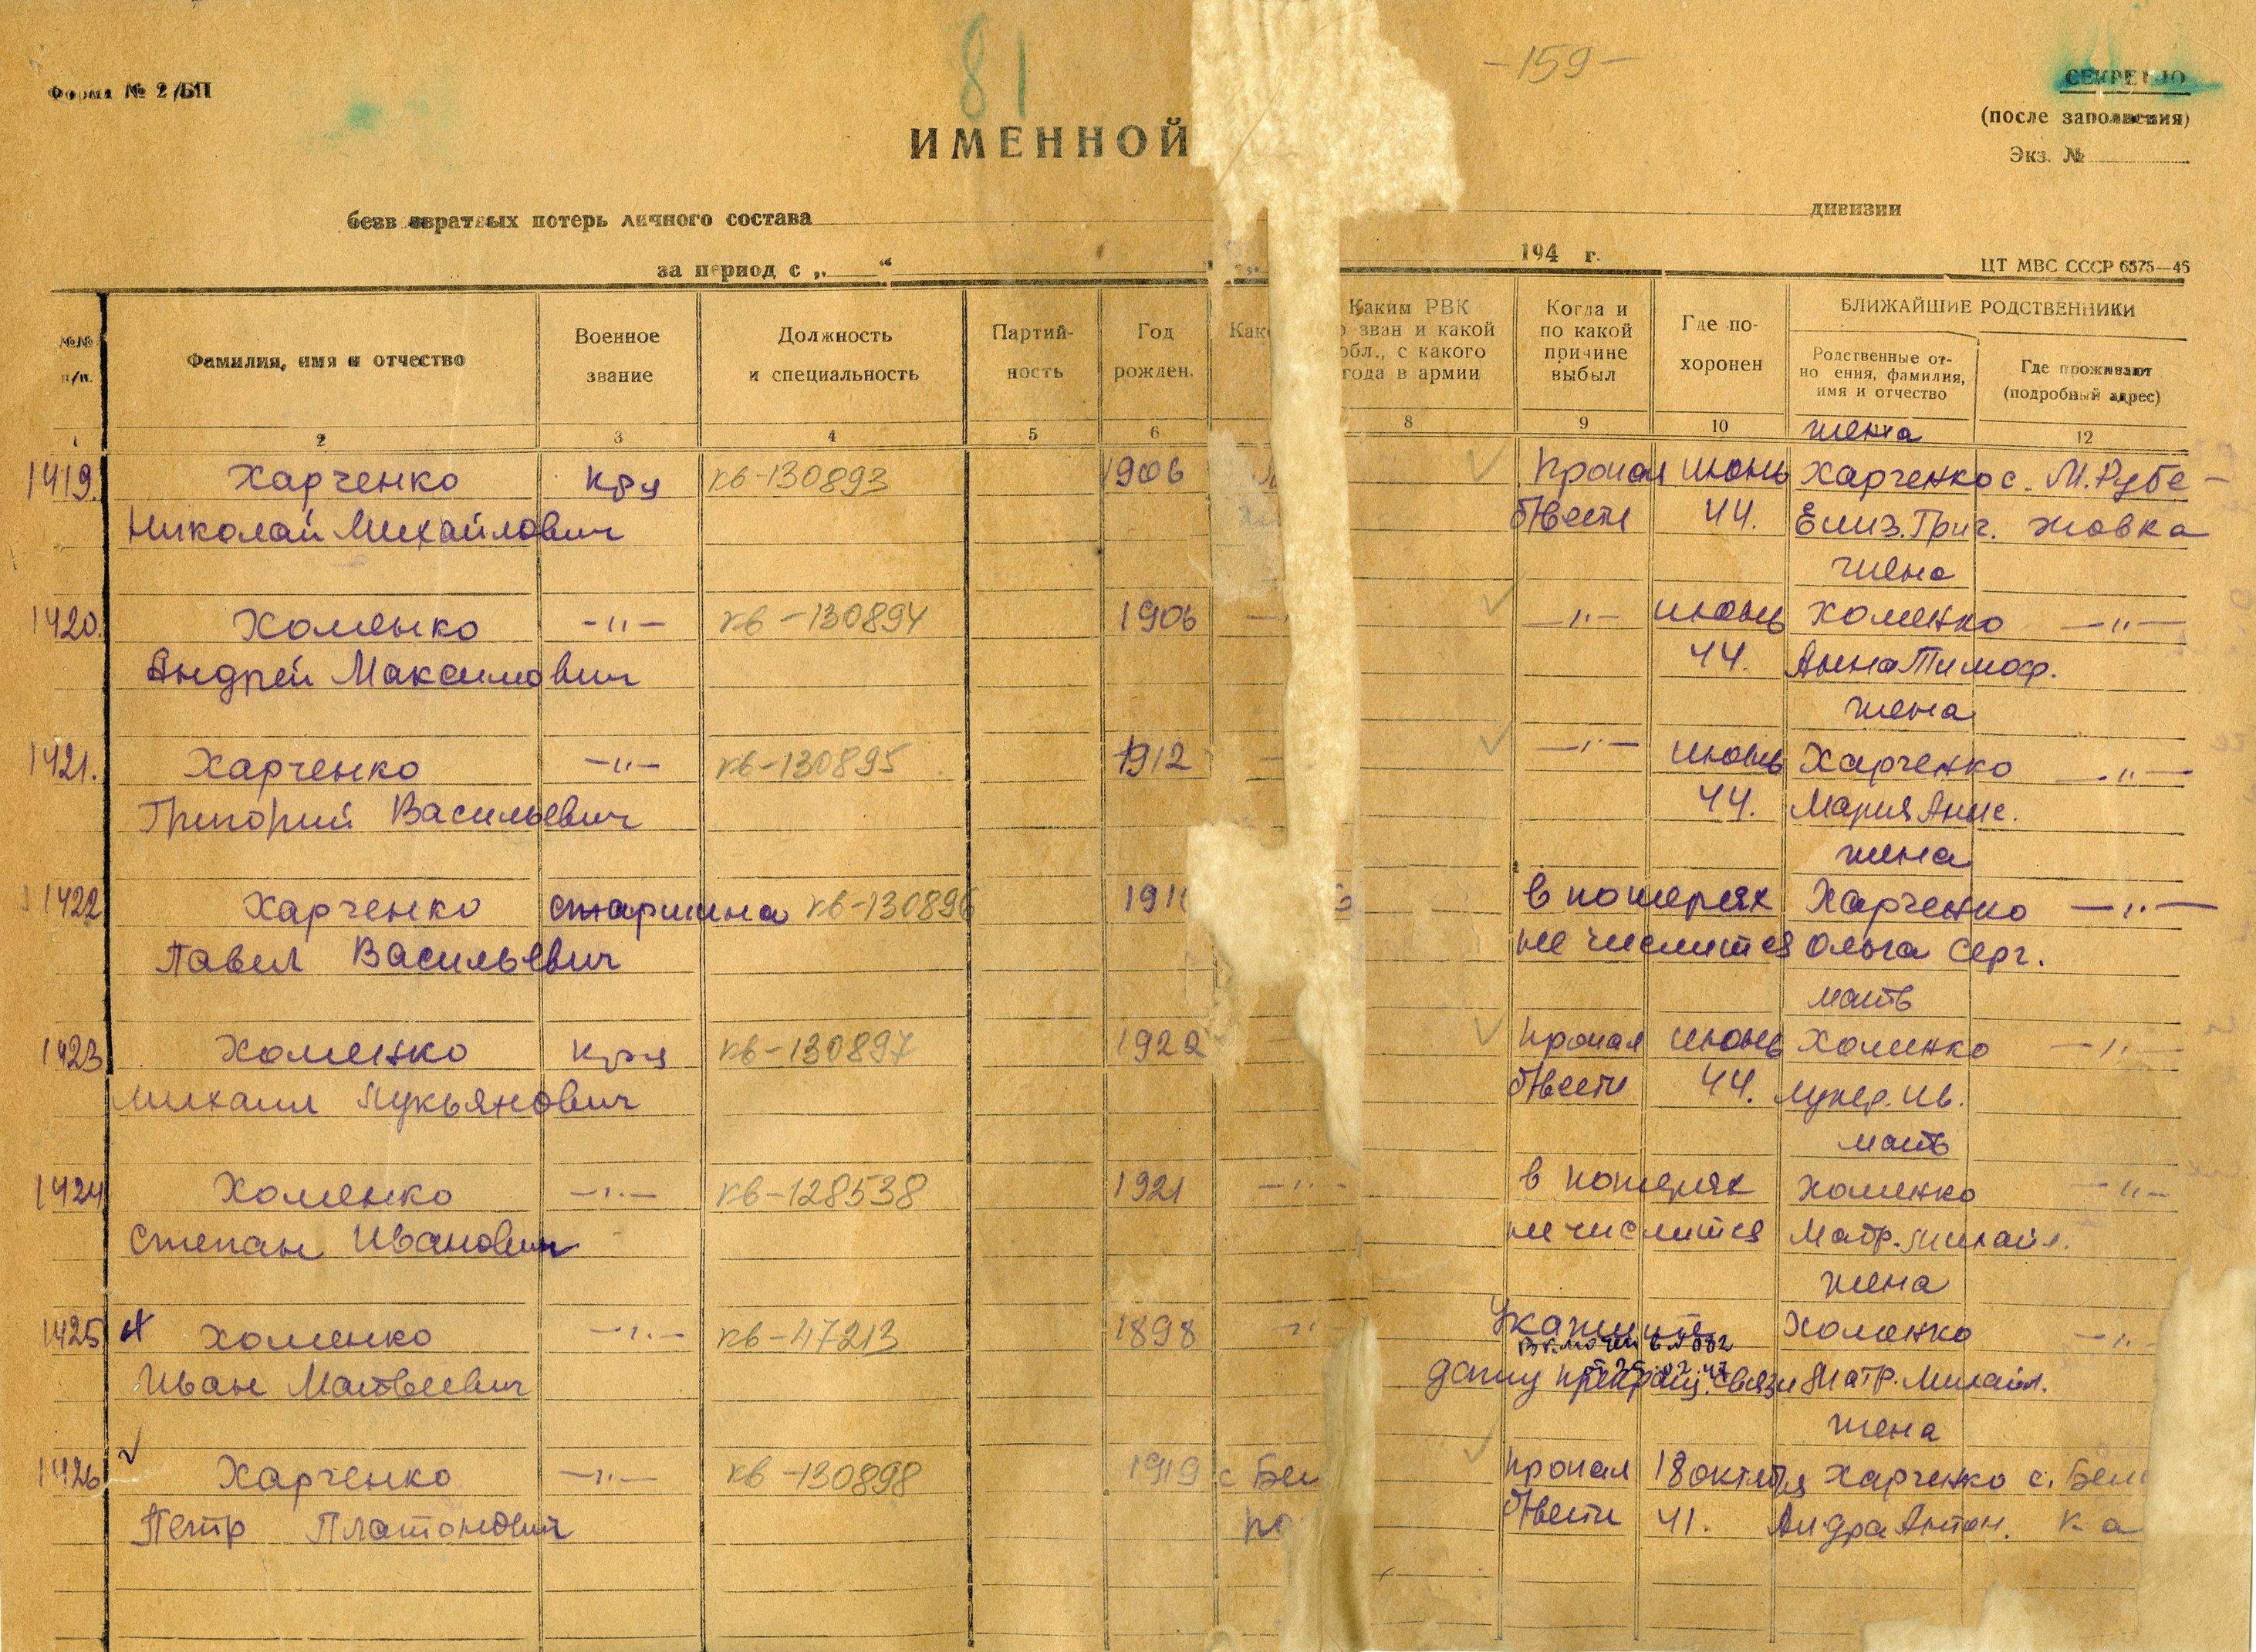 81
-159-
Форма № 2/БП
СЕКРЕТНО
(после заполнения)
Экз. №
ИМЕННОЙ
безвозвратных потерь личного состава дивизии
за период с „ “ 194 г.
ЦТ МВС СССР 6575—45
№№ п/п.
Фамилия, имя и отчество
Военное звание
Должность и специальность
Партийность
Год рожден.
Каким РВК
зван и какой
обл., с какого
года в армии
Когда и по какой причине выбыл
Где похоронен
БЛИЖАЙШИЕ РОДСТВЕННИКИ
Родственные от-
но ения, фамилия,
имя и отчество
Где проживают
(подробный адрес)
1 2 3 4 5 6 8 9 10 12
жена
1419. Харченко кр-ц кв-130893 1906 пропал июнь Харченко с. М. Рубе-
Николай Михайлович б/вести 44. Елиз. Григ. жовка
жена
1420. Хоменко —"— кв-130894 1906 —"— июнь Хоменко —"—
Андрей Максимович 44. Анна Тимоф.
жена
1421. Харченко —"— кв-130895 1912 —"— июнь Харченко —"—
Григорий Васильевич 44. Мария Анис.
жена
1422 Харченко старшина кв-130896 191 в потерях Харченко —"—
Павел Васильевич не числится Ольга Серг.
мать
1423 Хоменко кр-ц кв-130897 1922 пропал июнь Хоменко —"—
Михаил Лукьянович б/вести 44. Лукер. Ив.
мать
1424 Хоменко —"— кв-128538 1921 —"— в потерях Хоменко —"—
Степан Иванович не числится Матр. Михайл.
жена
1425 Хоменко —"— кв-47213 1898 —"— Укажите Хоменко —"—
Включен в № 082
Иван Матвеевич дату прекращ. связи Матр. Михайл.
жена
1426 Харченко —"— кв-130898 1919 с Бел пропал 18 октября Харченко с. Бели
Петр Платонович б/вести 41. Антон. ка